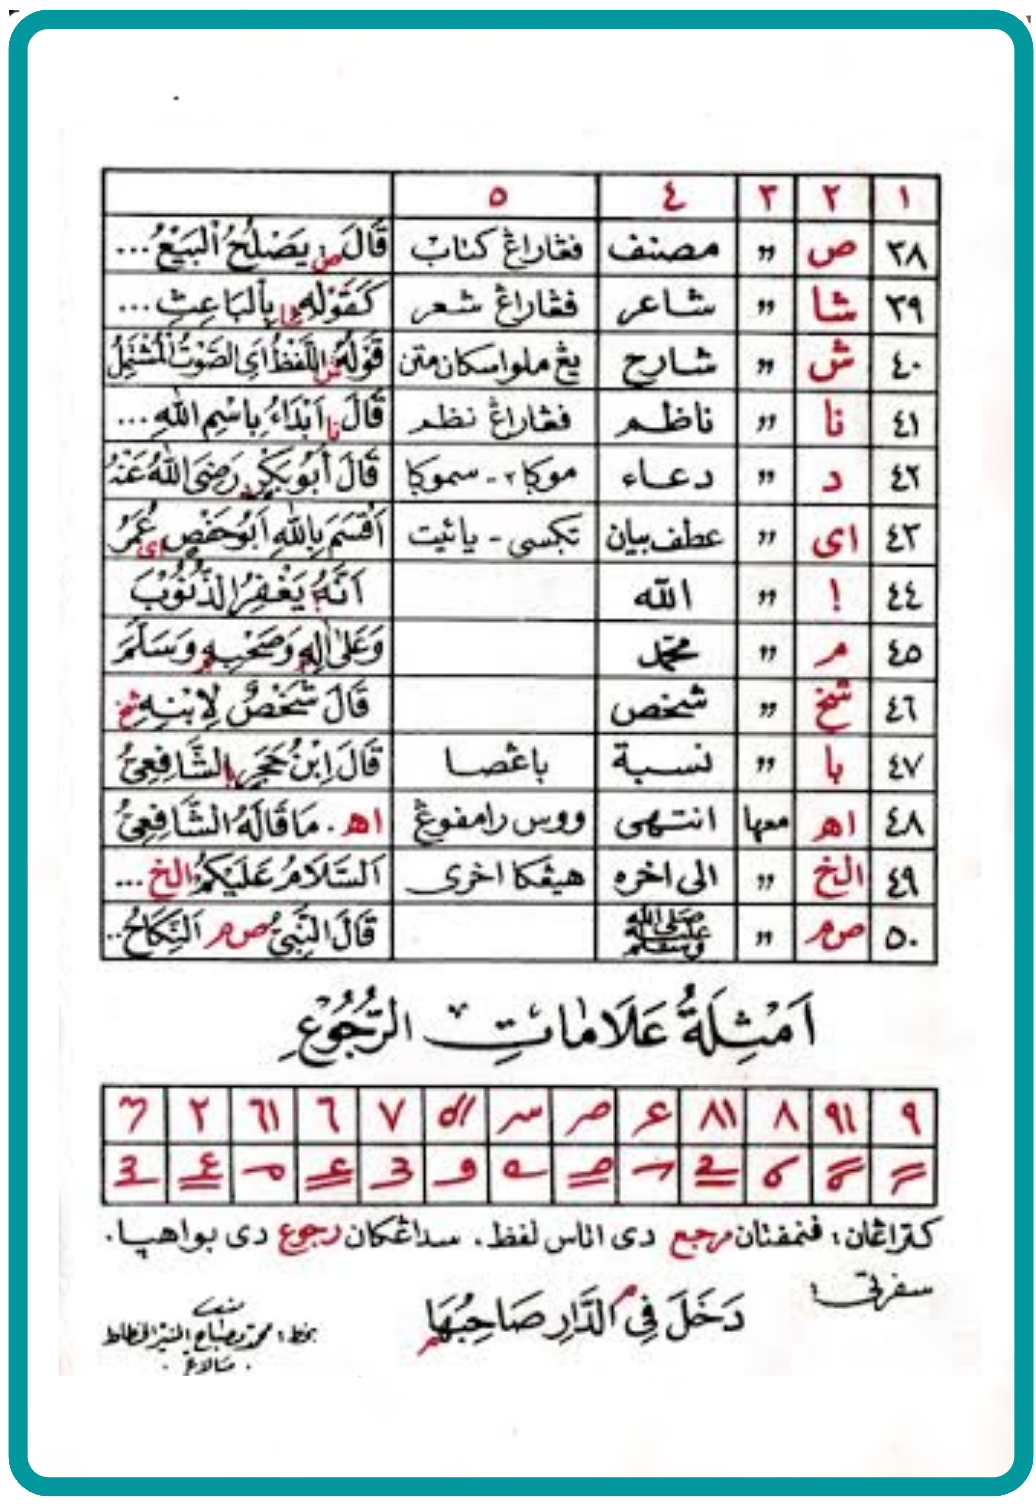 ١ ٢ ٣ ٤ ٥
٣٨ ص " مصنف فڠاراڠ كتاب قَالَ ص يَصْلُحُ الْبَيْعُ...
٣٩ شا " شاعر فڠاراڠ شعر كَقَوْلِهِ شا بِالْبَاعِثِ...
٤٠ ش " شارح يڠ ملواسكان متن قَوْلُهُ ش اللَّفْظُ اَىِ الصَّوْتُ الْمُشْتَمِلُ
٤١ نا " ناظم فڠاراڠ نظم قَالَ نا اَبْدَاءُ بِاسْمِ اللهِ...
٤٢ د " دعاء موڮا٢ - سموڮا قَالَ أَبُو بَكْرٍ د رَضِيَ اللهُ عَنْهُ
٤٣ اى " عطف بيان تكسى - يائيت اَقْسَمَ بِاللهِ اَبُوحَفْصٍ اى عُمَرُ
٤٤ ! " الله اَنَّهُ يَغْفِرُ الذُّنُوْبَ
٤٥ م " محمّد وَعَلٰى اٰلِهِ م وَصَحْبِهِ م وَسَلَّمَ
٤٦ شخ " شخص قَالَ شَخْصٌ لِابْنِهِ شخ
٤٧ با " نسبة باڠصا قَالَ ابْنُ حَجَرٍ با الشَّافِعِيُّ
٤٨ اهـ معها انتهى ووس رامفوڠ اهـ . مَا قَالَهُ الشَّافِعِيُّ
٤٩ الخ " الى اخره هيڠكا اخرى اَلسَّلَامُ عَلَيْكُمْ الخ ...
٥٠ ص م " صلى الله عليه وسلم قَالَ النَّبِيُّ ص م اَلنِّكَاحُ..
اَمْثِلَةُ عَلَامَاتِ الرُّجُوْعِ
٩ ٩١ ٨ ٨١ ع ص س ٧ ٦ ٦١ ٢
كتراڠان : فنمفتان مرجع دى اتاس لفظ، سداڠكان رجوع دى بواهيا.
سفرتى :
دَخَلَ فِي الدَّارِ م صَاحِبُهَا م